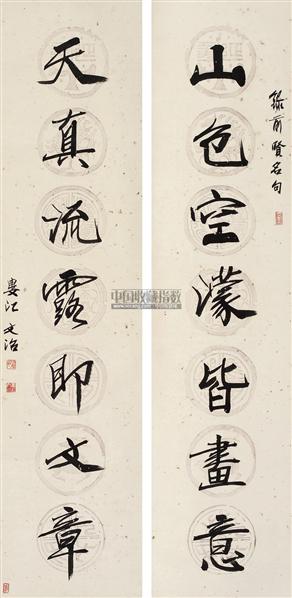 錄前賢名句
山色空濛皆畫意
天真流露即文章
婁江文治
中国收藏指数